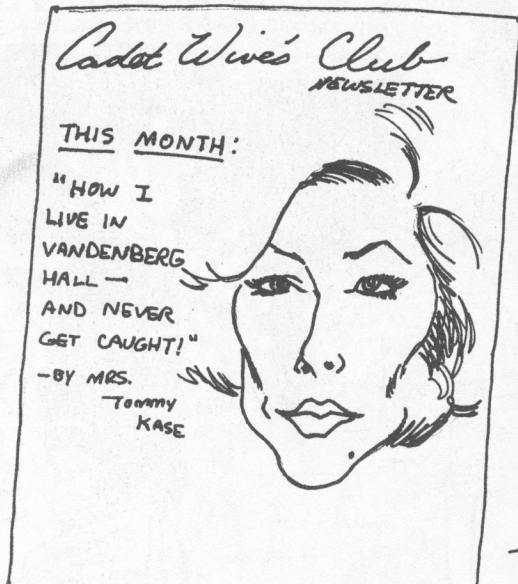 Cadet Wive's Club
NEWSLETTER
THIS MONTH:
"HOW I
LIVE IN
VANDENBERG
HALL —
AND NEVER
GET CAUGHT!"
-BY MRS.
Tommy
KASE